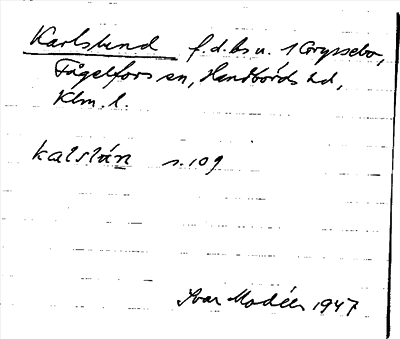 Karlslund f.d. bs u. 1 Gryssebo,
Fågelfors sn, Handbörds hd,
Klm. l.
kalslán s. 109
Ivar Modéer 1947